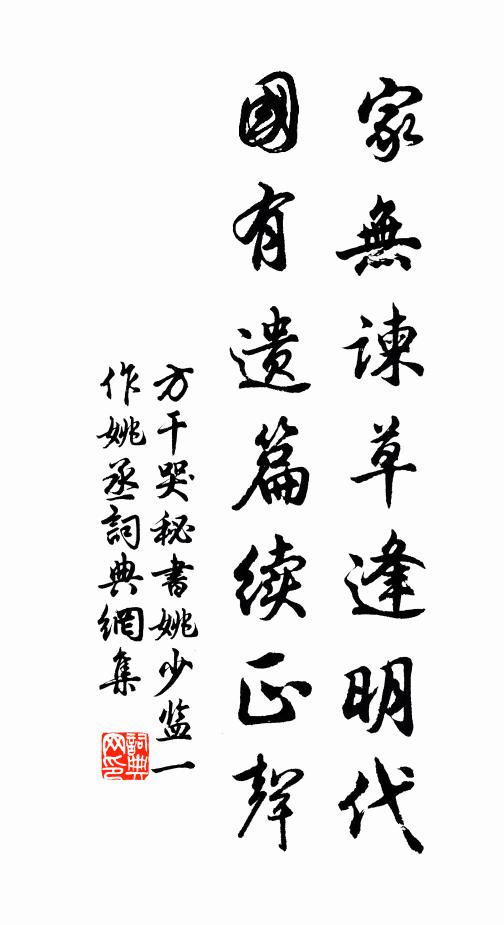 家無諫草逢明代
國有遺篇續正聲
方干哭秘書姚少监一
作姚丞詞典網集
詞典
网印